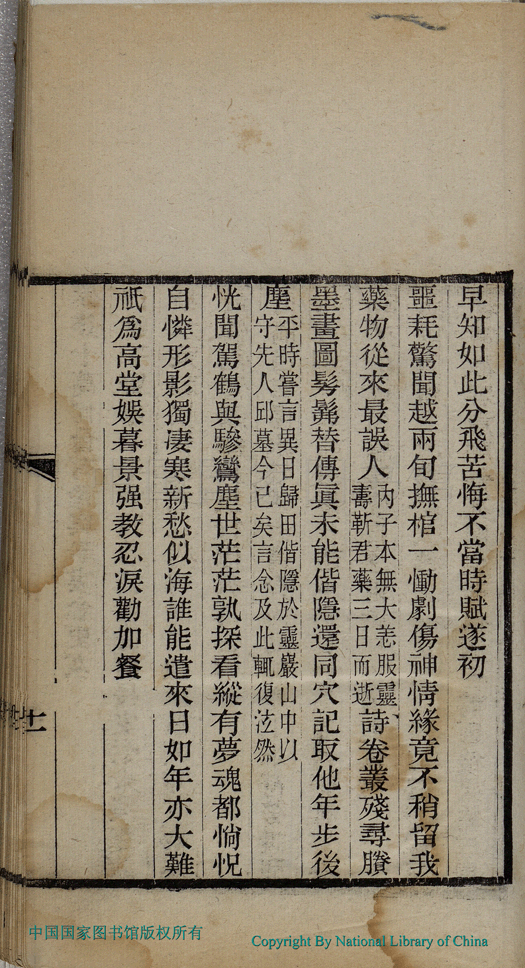 早知如此分飛苦悔不當時賦遂初
噩耗驚聞越兩旬撫棺一慟劇傷神情緣竟不稍留我
藥物從來最誤人內子本無大恙服靈壽靳君藥三日而逝詩卷叢殘尋賸
墨畫圖髣髴替傳眞未能偕隱還同穴記取他年步後
塵平時嘗言異日歸田偕隱於靈巖山中以守先人邱墓今已矣言念及此輒復泫然
恍聞駕鶴與驂鸞塵世茫茫孰探看縱有夢魂都惝怳
自憐形影獨淒寒新愁似海誰能遣來日如年亦大難
祇爲高堂娛暮景强教忍淚勸加餐
十一
中国国家图书馆版权所有
Copyright By National Library of China